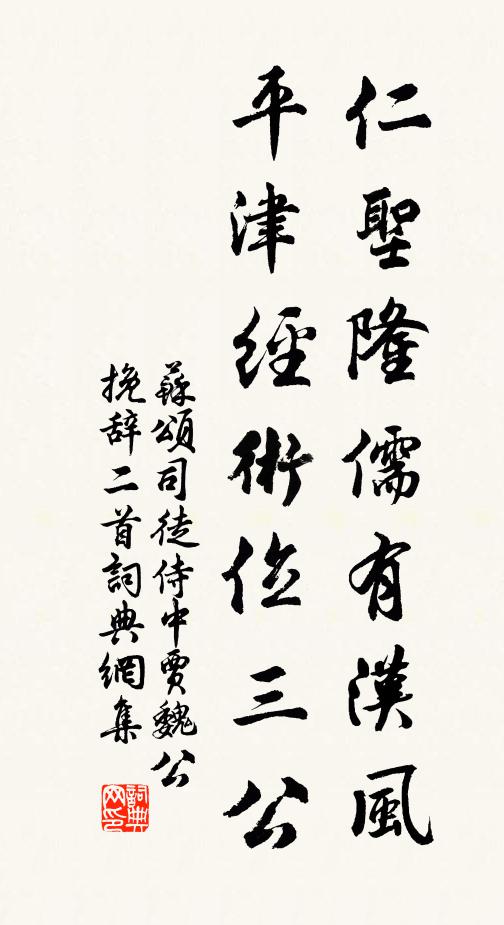 仁聖隆儒有漢風
平津經術位三公
蘇頌司徒侍中賈魏公
挽辞二首詞典網集
詞典网印